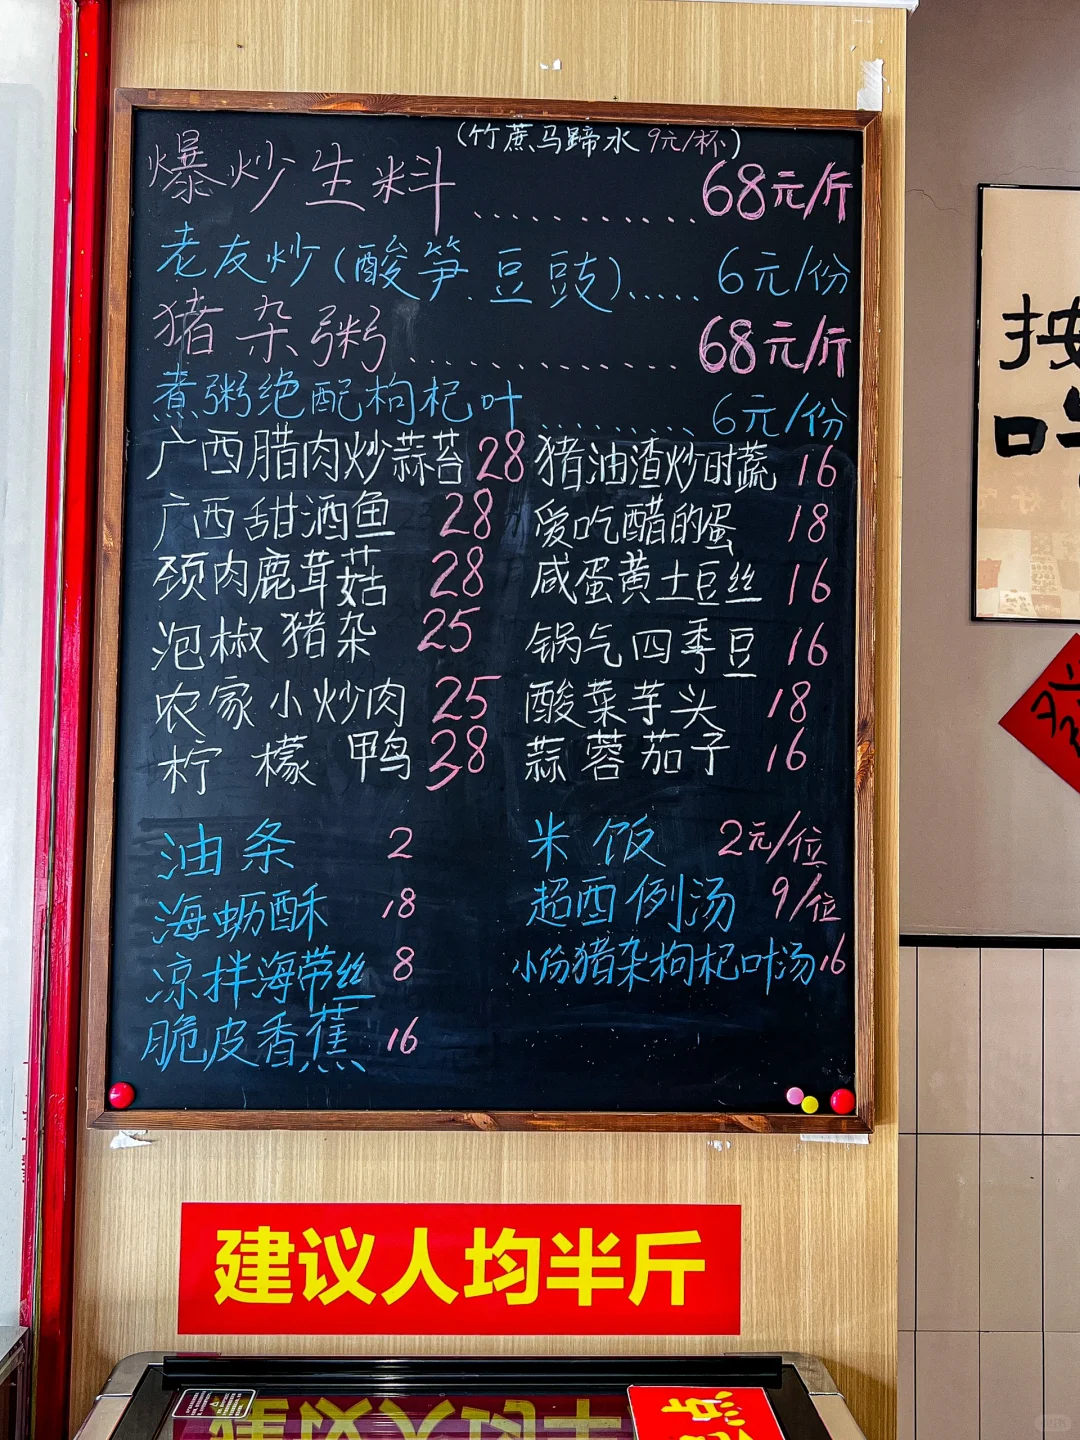 (竹蔗马蹄水 9元/杯)
爆炒生料............68元/斤
老友炒(酸笋.豆豉)......6元/份
猪杂粥..............68元/斤
煮粥绝配枸杞叶..........6元/份
广西腊肉炒蒜苔 28
猪油渣炒时蔬 16
广西甜酒鱼 28
爱吃醋的蛋 18
颈肉鹿茸菇 28
咸蛋黄土豆丝 16
泡椒猪杂 25
锅气四季豆 16
农家小炒肉 25
酸菜芋头 18
柠檬鸭 38
蒜蓉茄子 16
油条 2
米饭 2元/位
海蛎酥 18
超西例汤 9/位
凉拌海带丝 8
小份猪杂枸杞叶汤 16
脆皮香蕉 16
建议人均半斤
按